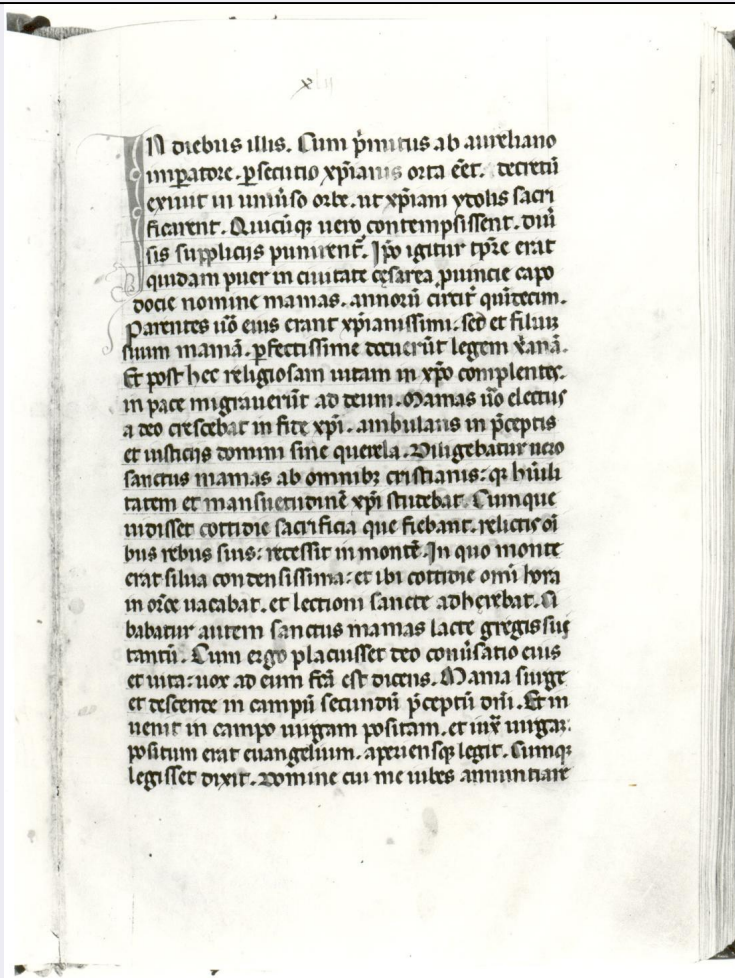 xiii
IN diebus illis. Cum p̄mitus ab aureliano
imꝑatore. ꝑsecutio xp̄ianis orta eēt. decretū
exiuit in uniūso orbe. ut xp̄iani ydolis sacri
ficarent. Quicūqꝫ uero contempsissent. diū
sis suppliciis punirent᷑. Ip̄o igitur tp̄re erat
quidam puer in ciuitate cęsarea ꝓuincie capo
docie nomine mamas. annorū circit᷑ quīdecim.
Parentes ū̄o eius erant xp̄ianissimi. sed et filiuꝫ
suum mamā. ꝑfectissime docuerūt legem x̄anā.
Et post hec religiosam uitam in xp̄o complentes.
in pace migrauerūt ad deum. Mamas ū̄o electus
a deo crescebat in fide xp̄i. ambulans in p̄ceptis
et iusticiis domini sine querela. Diligebatur uero
sanctus mamas ab omnibꝫ cristianis: qꝛ hūili
tatem et mansuetudinē xp̄i studebat. Cumque
uidisset cottidie sacrificia que fiebant. relictis oī
bus rebus suis: recessit in montē. In quo monte
erat silua condensissima: et ibi cottidie omī hora
in or̄oe uacabat. et lectioni sancte adherebat. Ci
babatur autem sanctus mamas lacte gregis sue
tantū. Cum ergo placuisset deo conūsatio eius
et uita: uox ad eum fc̄a est dicens. Mama surge
et descende in campū secundū p̄ceptū dn̄i. Et in
uenit in campo uirgam positam. et iux̄ uirgaꝫ.
positum erat euangelium. aperiensqꝫ legit. Cumqꝫ
legisset dixit. Domine cui me iubes annuntiare